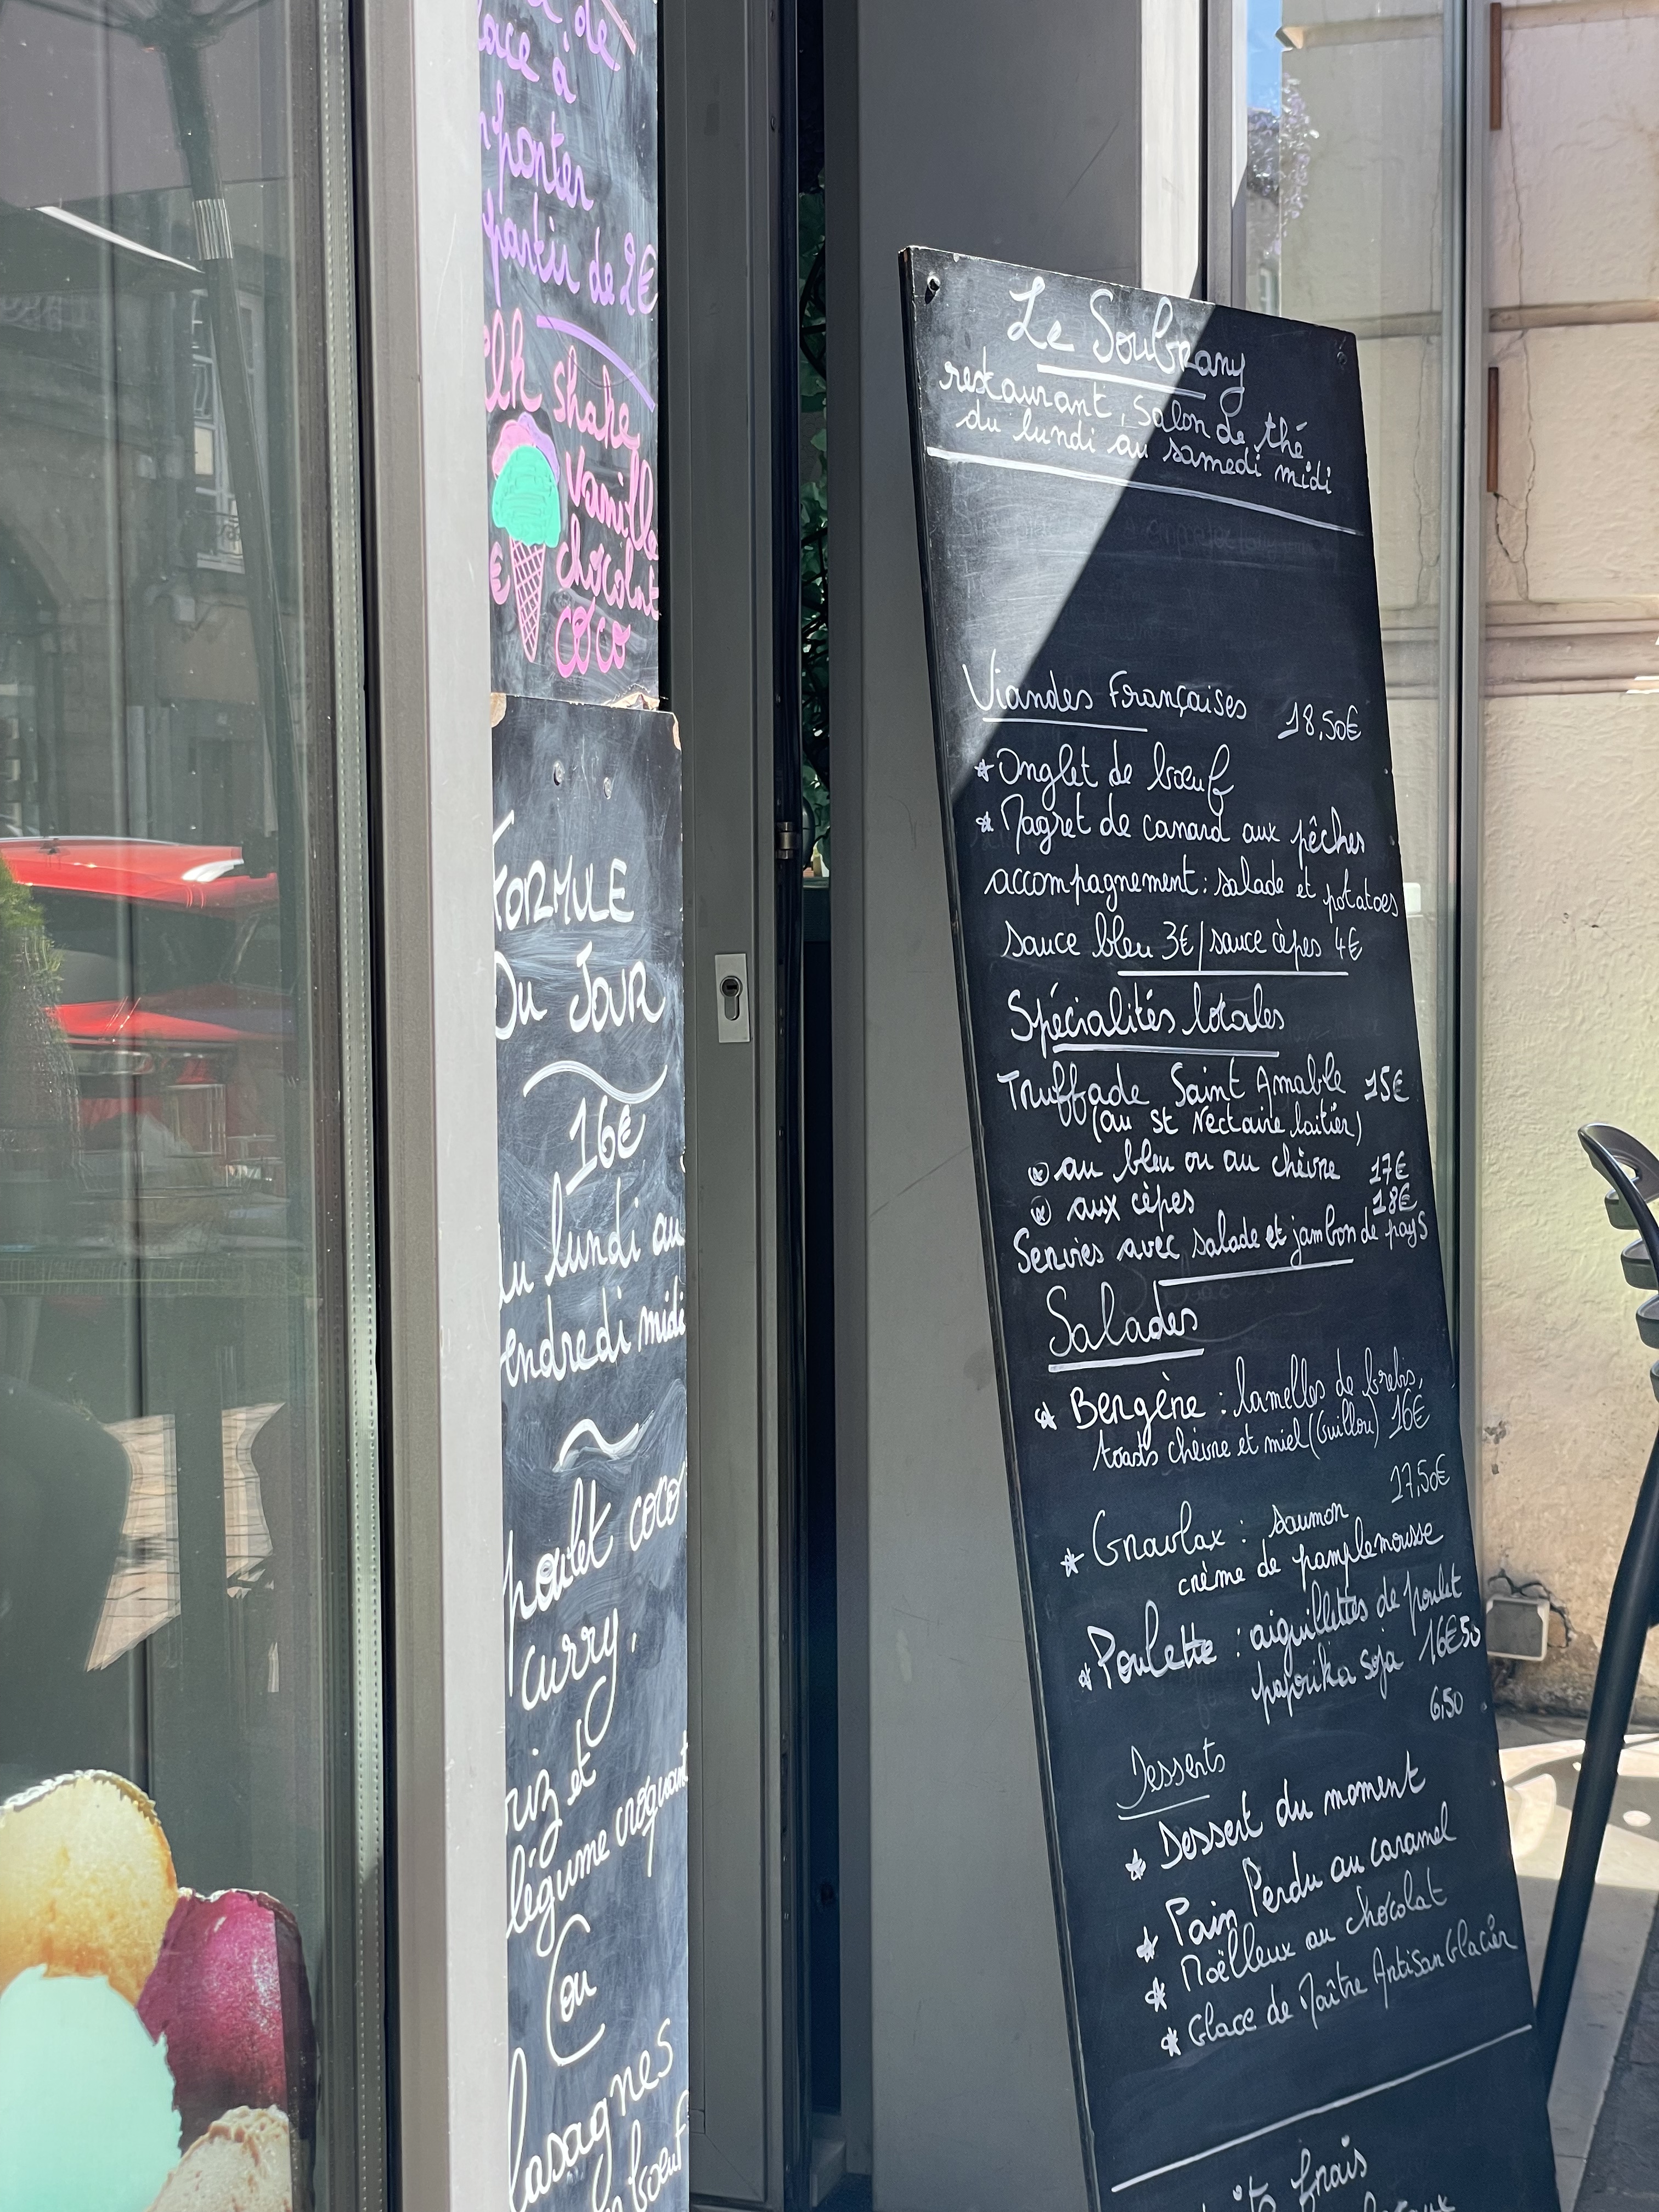 de
à
porter
partir de 2€
shake
Vanille
chocolat
€
coco
FORMULE
Du JOUR
16€
du lundi au
vendredi midi
poulet coco
curry,
riz et
légume croquant
ou
lasagnes
boeuf
Le Soubrany
restaurant, Salon de thé
du lundi au samedi midi
Viandes Françaises 18,50€
Onglet de bœuf
Magret de canard aux pêches
accompagnement: salade et potatoes
sauce bleu 3€/sauce cèpes 4€
Spécialités locales
Truffade Saint Amable 15€
(au st Nectaire laitier)
au bleu ou au chèvre 17€
aux cèpes 18€
Servies avec salade et jambon de pays
Salades
Bergère : lamelles de brebis,
toasts chèvre et miel (Guillou) 16€
17,50€
Gravlax : saumon
crème de pamplemousse
Poulette : aiguillettes de poulet
paprika soja 16€50
6,50
Desserts
Dessert du moment
Pain Perdu au caramel
Moëlleux au chocolat
Glace de Maître Artisan Glacier
frais